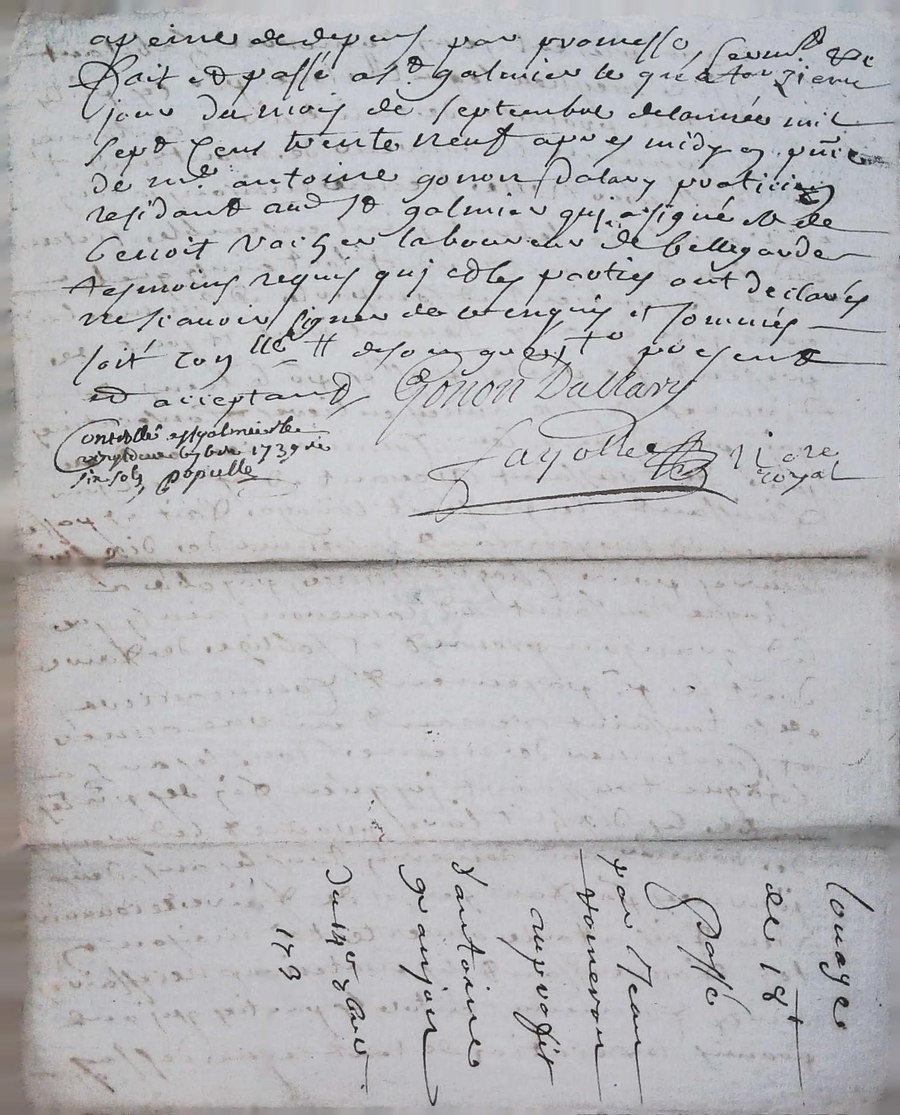 a peine de depens par promesse, serm.t &c
fait et passé a s.t galmier le quatorzieme
jour du mois de septembre de lannée mil
sept cens trente neuf apres midy en pñce
de m.e antoine gonon dalary praticien
residant aud st galmier qui a signé et de
benoit vacher laboureur de bellegarde
tesmoins requis qui et les parties ont declarés
ne scavoir signer de ce enquis et sommés
soit con.lle
present
et acceptant Gonon Dullary
Controllé a st galmier le
7bre 1739 re
six sols Populle
fayolle nore
royal
louage
de 18 tt
Passé
par Jean
vomeron
au proffit
d'antoine
granjon
du 14e 7bre
173